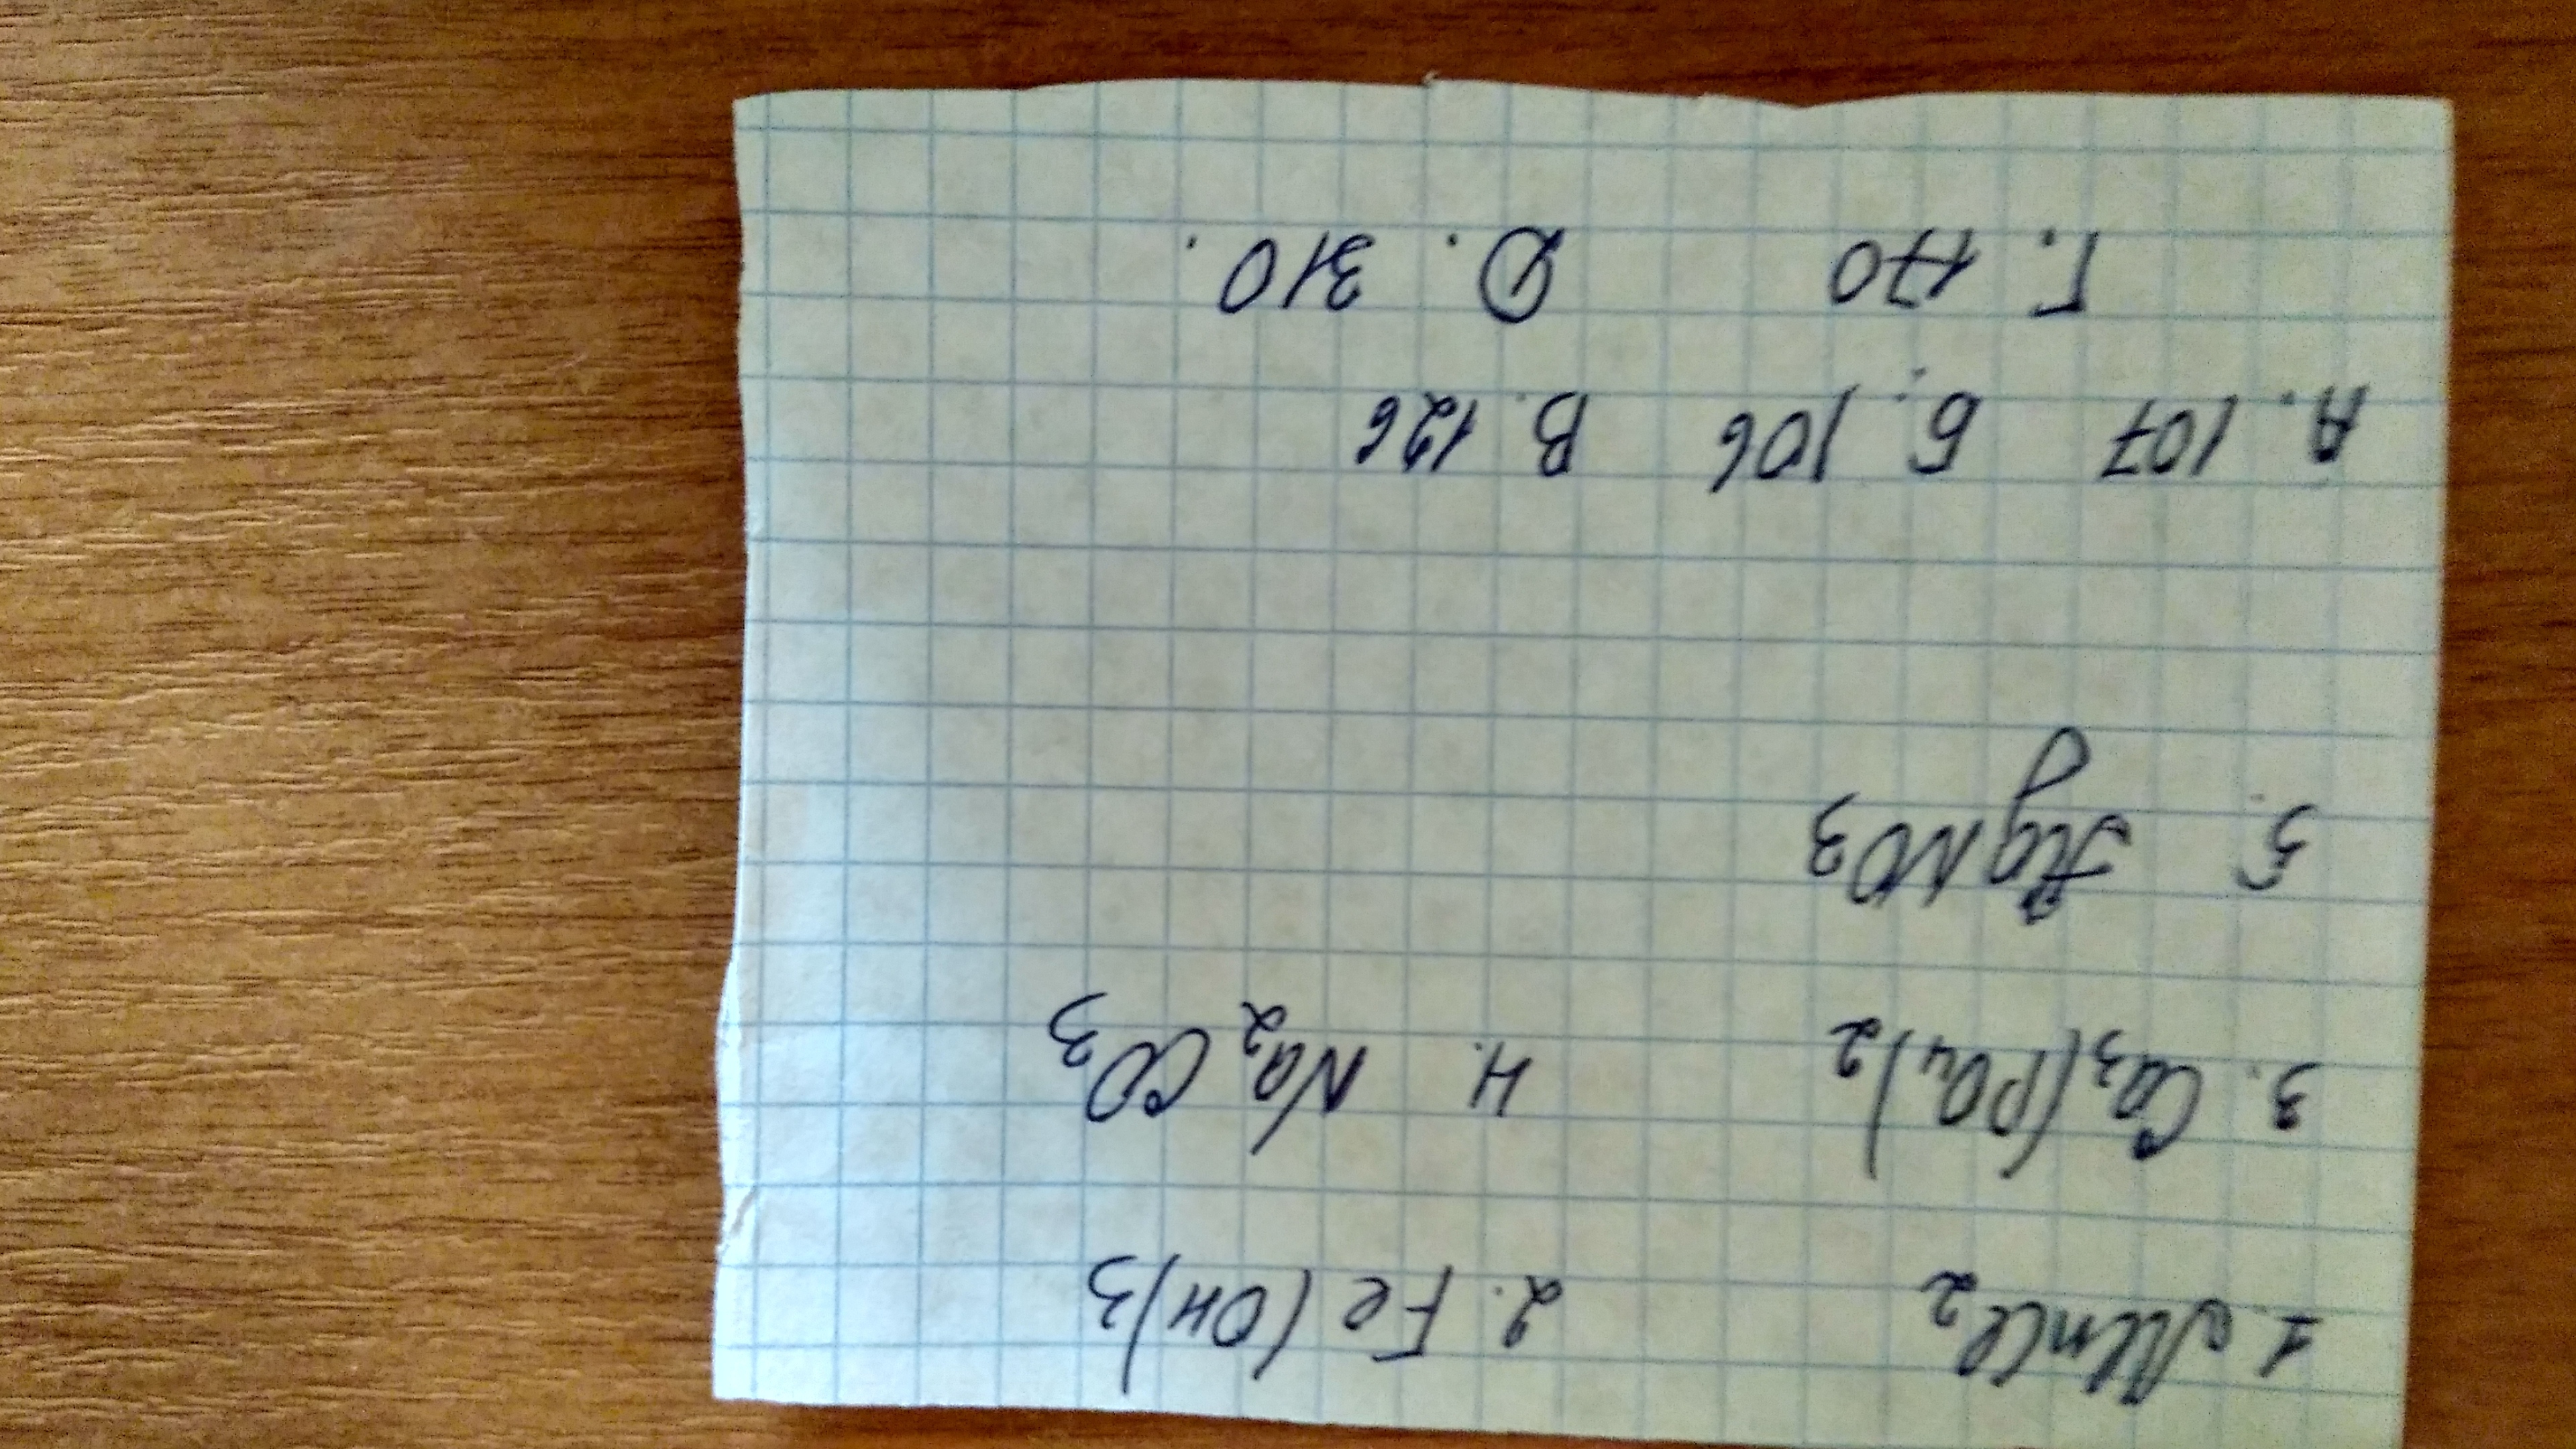 1. MnCl₂ 2. Fe(OH)₃
3. Ca₃(PO₄)₂ 4. Na₂CO₃
5. AgNO₃
А. 107 Б. 106 В. 126
Г. 170 Д. 310.